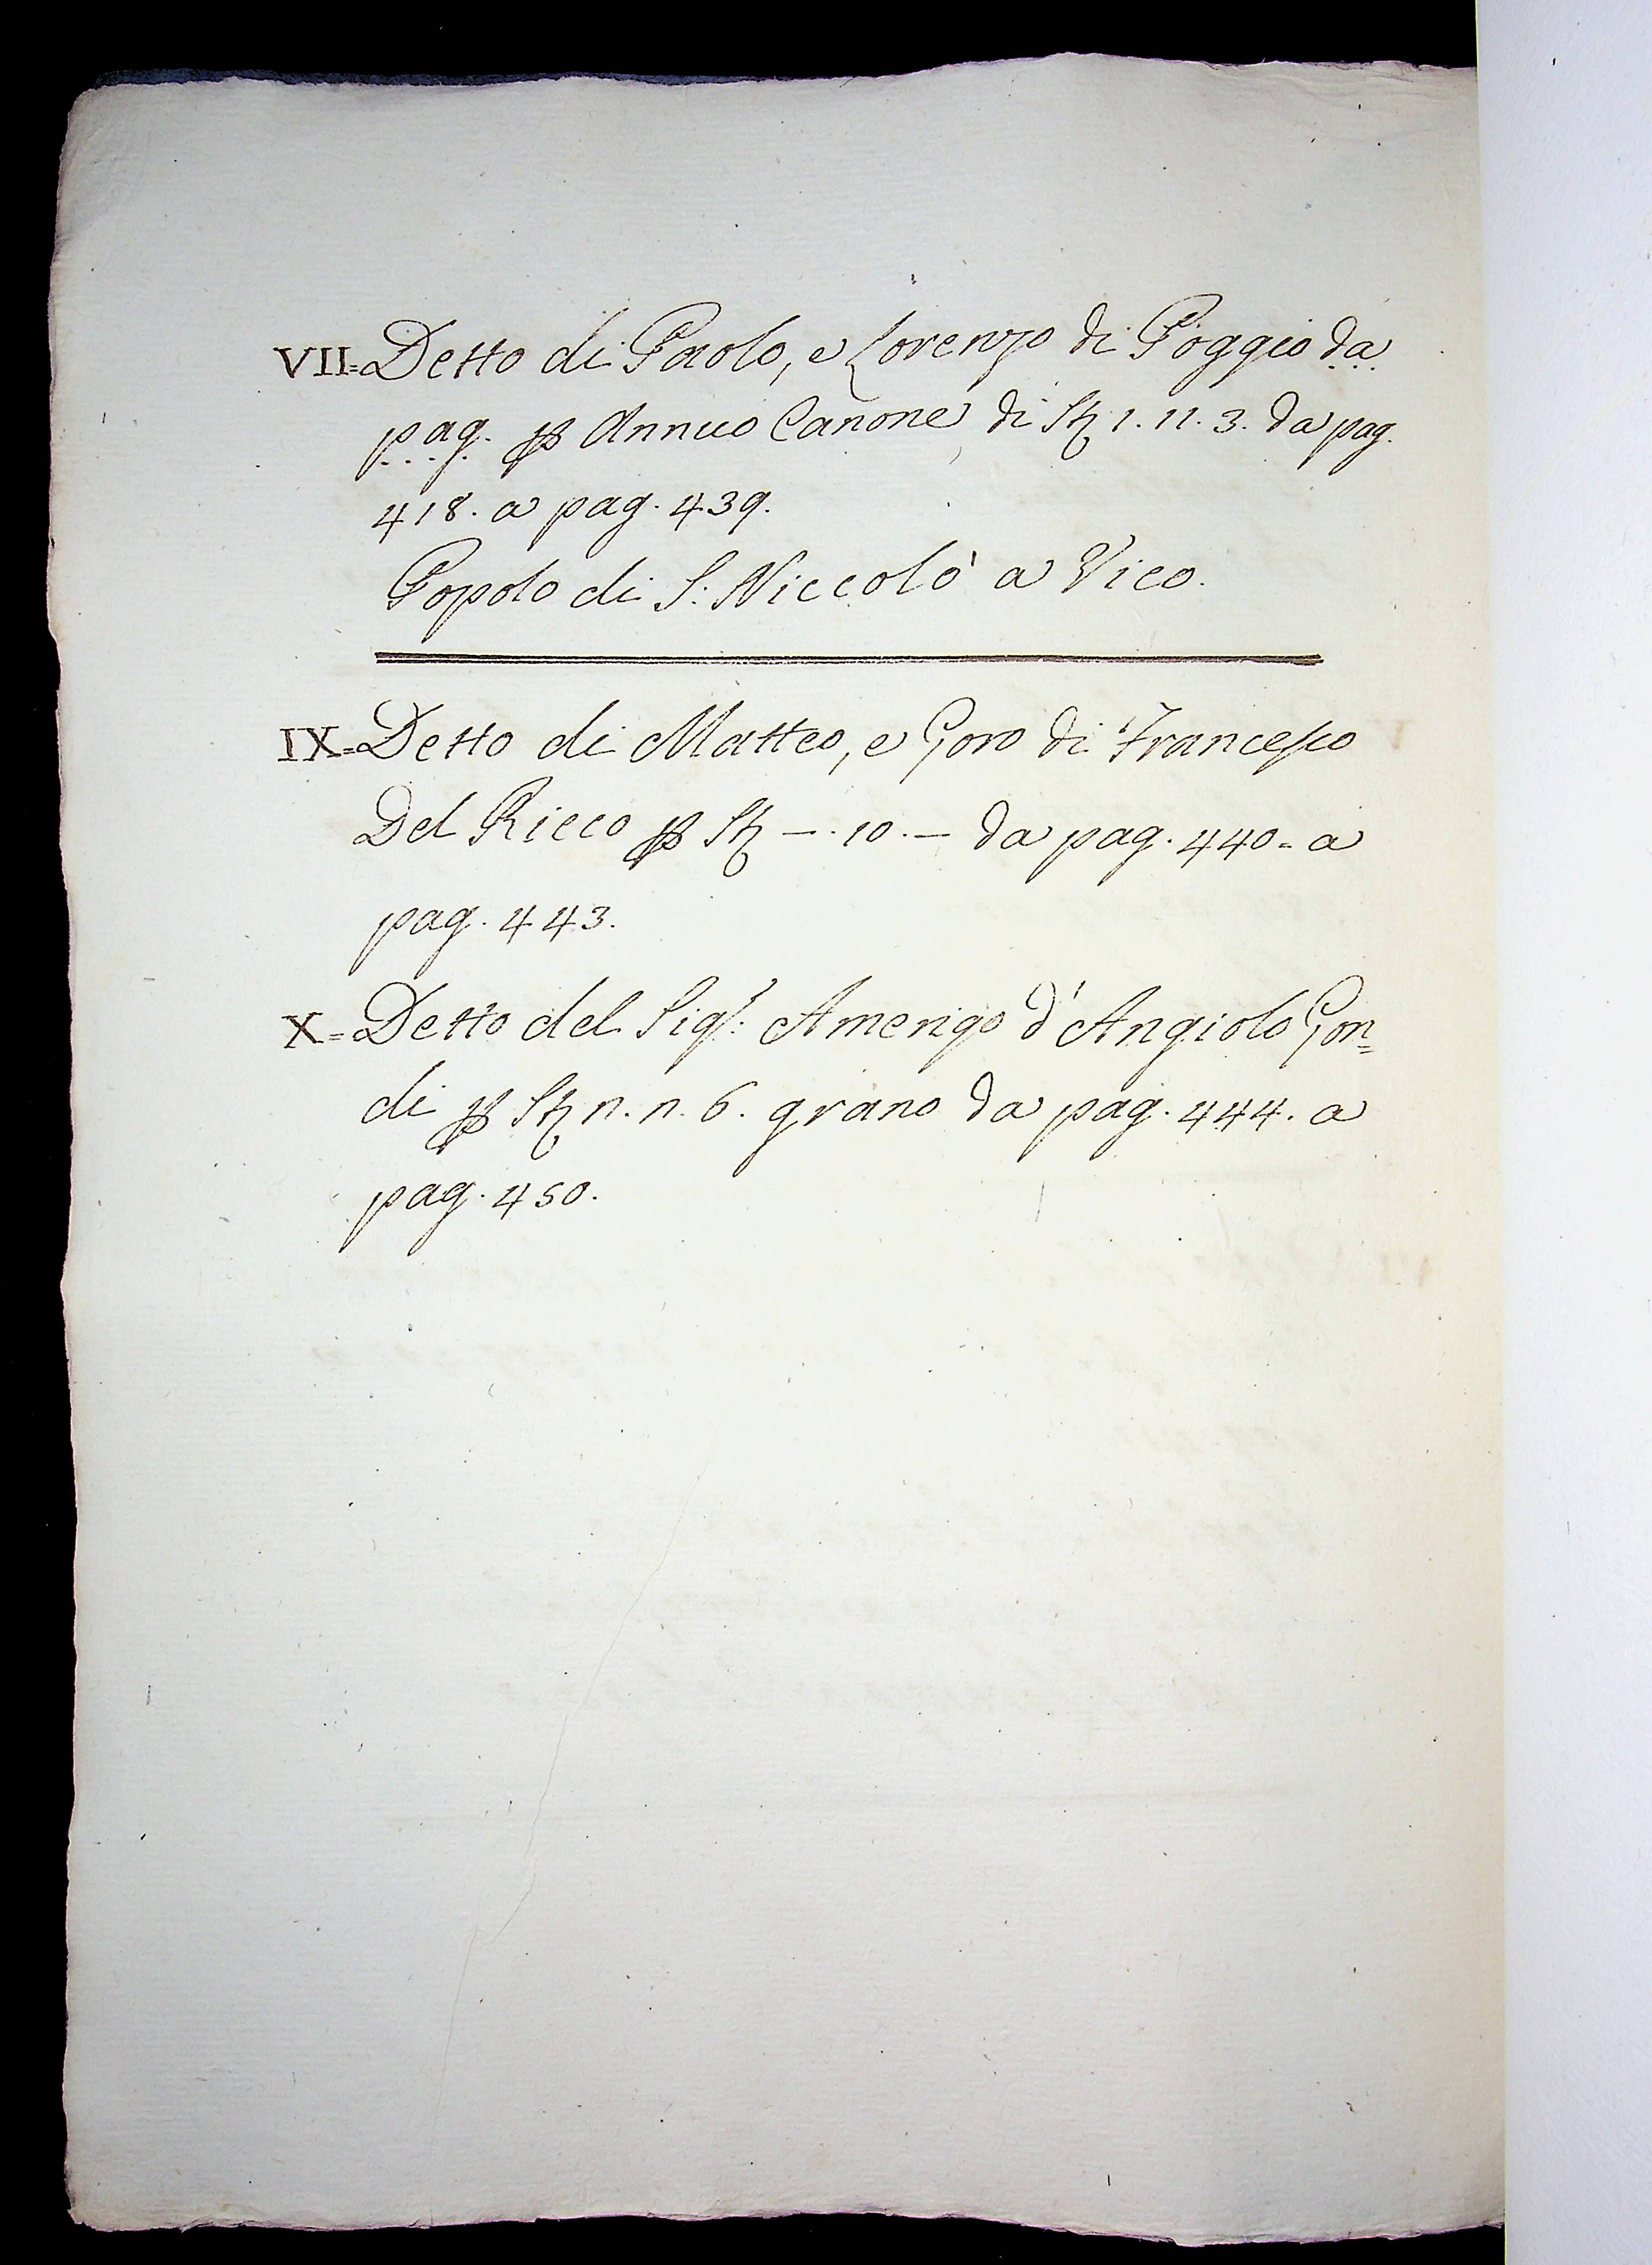 VII=Detto di Paolo, e Lorenzo di Poggio da
pag. ꝑ Annuo Canone di St. 1. 11. 3. da pag.
418. a pag. 439.
Popolo di S: Niccolò a Vico.
IX=Detto di Matteo, e Goro di Francesco
Del Ricco ꝑ St. —. 10. — da pag. 440. a
pag. 443.
X=Detto del Sigr: Amerigo d'Angiolo Gon=
di ꝑ St. n. n. 6. grano da pag. 444. a
pag. 450.